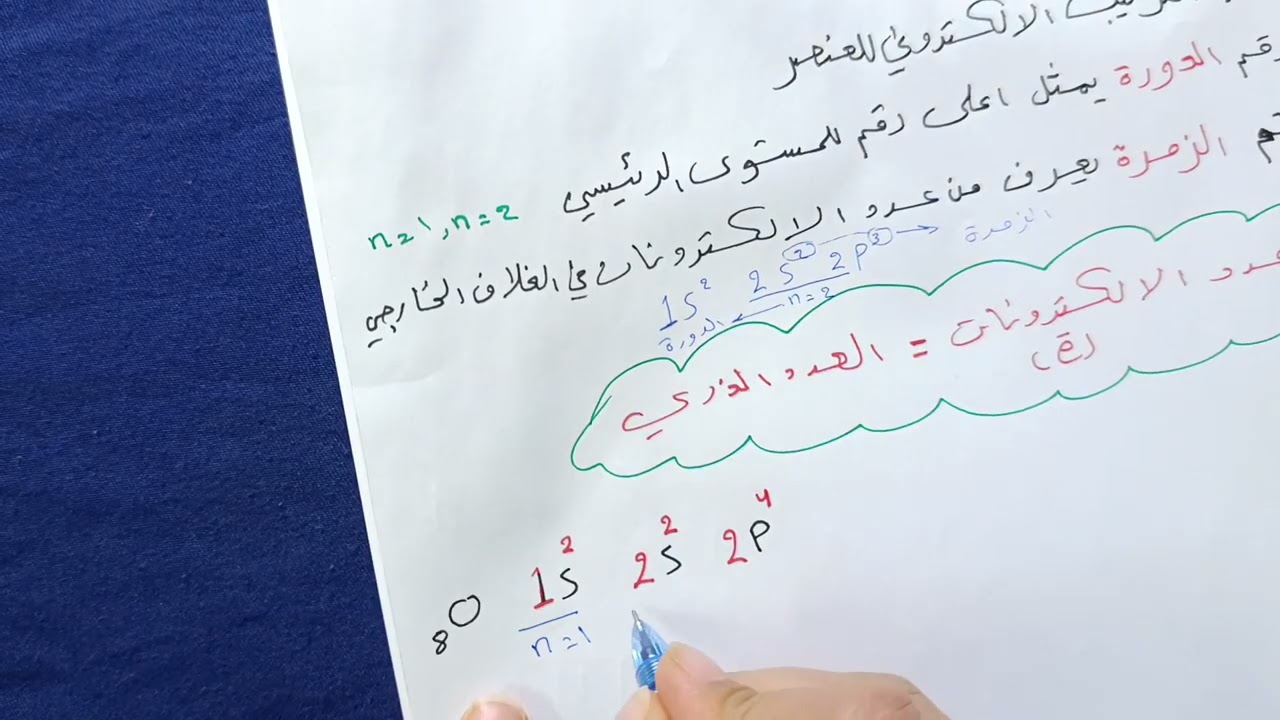 الالكتروني للعنصر
الدورة يمثل اعلى رقم للمستوى الرئيسي n=1, n=2
الزمرة يعرف من عدد الالكترونات في الغلاف الخارجي
1s² 2s² 2p³ → الزمرة
n=2
الدورة
عدد الالكترونات = العدد الذري
(e)
₈O 1s² 2s² 2p⁴
n=1